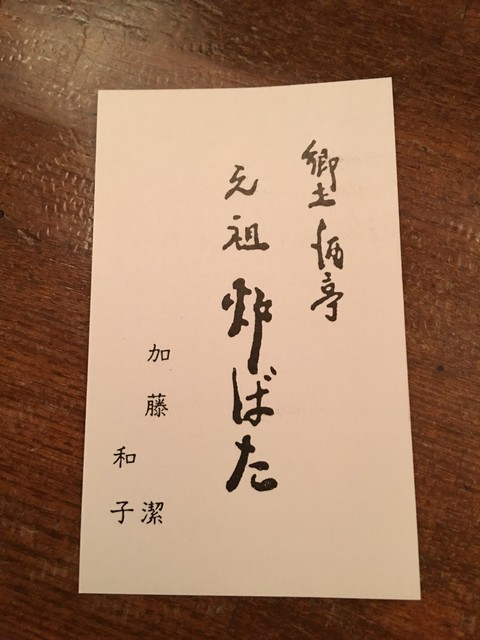 郷土酒亭
元祖炉ばた
加藤潔
和子